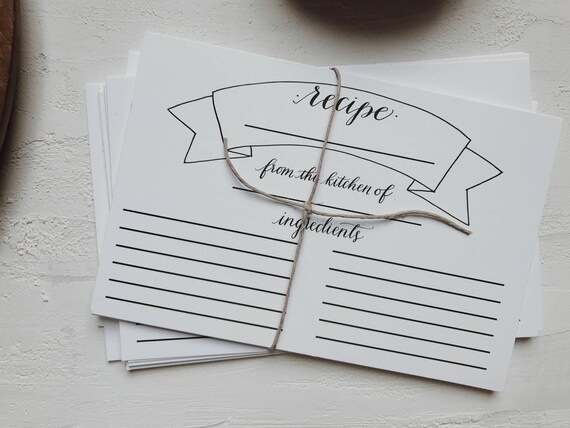 recipe
from the kitchen of
ingredients